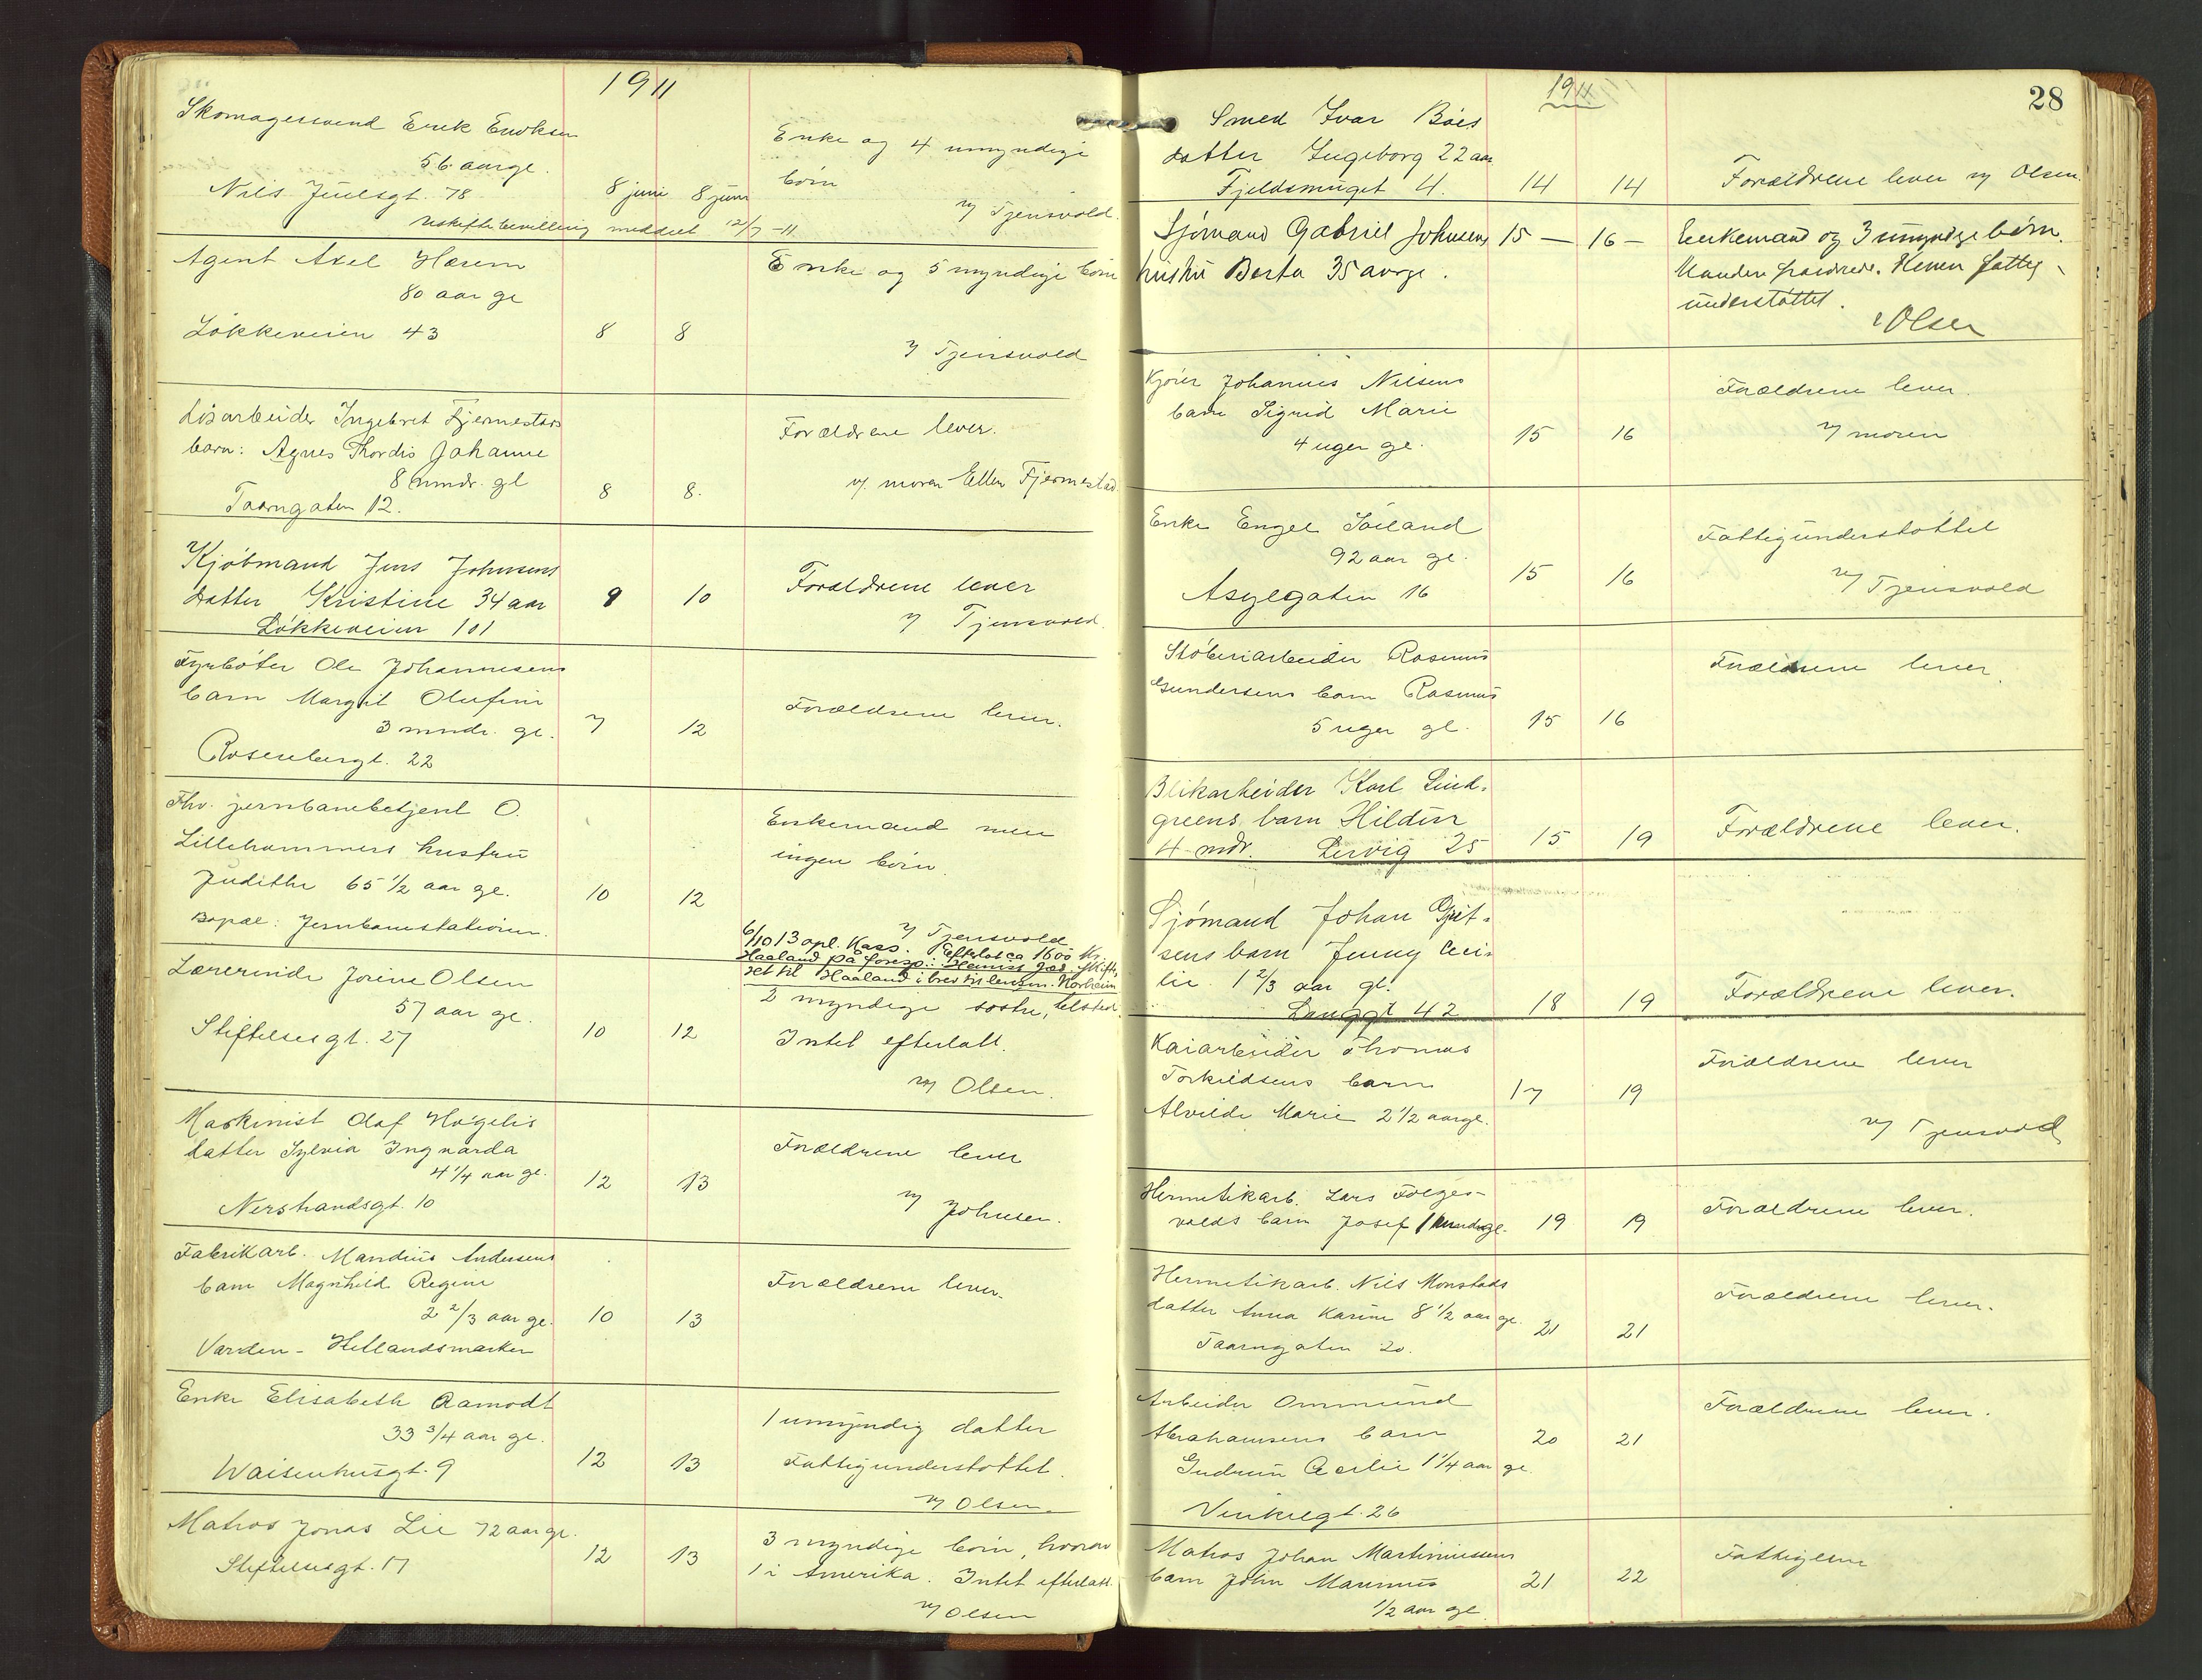 1911
Skomagersvend Erik Eriksen
56 aar gl.
Nils Juelsgt. 78
8 juni 8 juni
Enke og 4 umyndige
børn
v/ Tjensvold.
Uskiftebevilling meddelt 12/7 -11
Agent Axel Hærem
80 aar gl
Løkkeveien 43
8 8
Enke og 5 myndige børn
v/ Tjensvold
Løsarbeider Ingebret Fjermestads
barn: Agnes Thordis Johanne
8 mndr. gl
Taarngaten 12.
8 8.
Forældrene lever.
v/. moren Ellen Fjermestad
Kjøbmand Jens Johnsens
datter Kristine 34 aar
Løkkeveien 101
9 10
Forældrene lever
v/ Tjensvold.
Fyrbøter Ole Johannesens
barn Margit Olufine
3 mndr. gl.
Rosenbergt. 22
7 12
Forældrene lever.
Fhv. jernbanebetjent O.
Lillehammers hustru
Judithe 65 1/2 aar gl.
Bopæl: Jernbanestationen.
10 12
Enkemand men
ingen børn.
v/ Tjensvold.
6/10 13 opl. Kass. Efterlot ca 1600 Kr.
Haaland på foresp.: Skifte
til Haaland i brev til lensm. Norheim
Lærerinde Jorine Olsen
57 aar gl.
Stiftelsesgt. 27
10 12
2 myndige søstre,
Intet efterlatt.
v/ Olsen.
Maskinist Olaf Høgelis
datter Sylvia Ingvarda
4 1/4 aar gl.
Nerstrandsgt. 10
12 13
Forældrene lever
v/ Johnsen.
Fabrikarb. Mandius Andersens
barn Magnhild Regine
2 2/3 aar gl.
Varden - Hetlandsmarken
10 13
Forældrene lever.
Enke Elisabeth Aamodt
33 3/4 aar gl.
Waisenhusgt. 9
12 13
1 umyndig datter
Fattigunderstøttet.
v/ Olsen.
Matros Jonas Lie 72 aar gl.
Stiftelsesgt. 17
12 13
3 myndige børn, hvorav
1 i Amerika. Intet efterlatt.
v/ Olsen
1911
28
Smed Ivar Bøes
datter Ingeborg 22 aar
Fjeldsmuget 4.
14 14
Forældrene lever v/ Olsen.
Sjømand Gabriel Johnsens
hustru Berta 35 aar gl.
15 — 16 —
Enkemand og 3 umyndige børn.
Manden fraskilt. Konen fattig-
understøttet.
v/ Olsen
Kjører Johannes Nilsens
barn Sigrid Marie
4 uger gl.
15 16
Forældrene lever.
v/ moren
Enke Engel Soiland
92 aar gl.
Asylgaten 16
15 16
Fattigunderstøttet
v/ Tjensvold
Støberiarbeider Rasmus
Gundersens barn Rasmus
5 uger gl.
15 16
Forældrene lever.
Blikarbeider Karl Lind-
greens barn Hildur
4 mdr. Lervig 25
15 19
Forældrene lever.
Sjømand Johan Gjit-
sens barn Jenny Ceci-
lie 1 2/3 aar gl.
Langgt 42
18 19
Forældrene lever.
Kaiarbeider Thomas
Torkildsens barn
Alvilde Marie 2 1/2 aar gl.
17 19
Forældrene lever
v/ Tjensvold
Hermetikarb. Lars Følges-
volds barn Josef 1 mnd gl.
19 19
Forældrene lever.
Hermetikarb. Nils Monstads
datter Anna Karine 8 1/2 aar gl.
Taarngaten 20.
21 21
Forældrene lever.
Arbeider Ommund
Abrahamsens barn
Gudrun Cecilie 1 1/4 aar gl.
Vinkelgt. 26
20 21
Forældrene lever.
Matros Johan Martinussens
barn John Marinus
1/2 aar gl.
21 22
Fattiglem